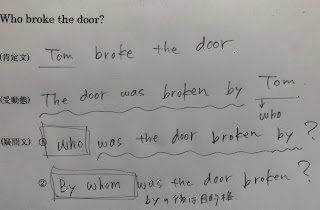 Who broke the door?
(肯定文) Tom broke the door.
(受動態) The door was broken by Tom.
who
(疑問文) ① who was the door broken by?
② By whom was the door broken?
byの後は目的格